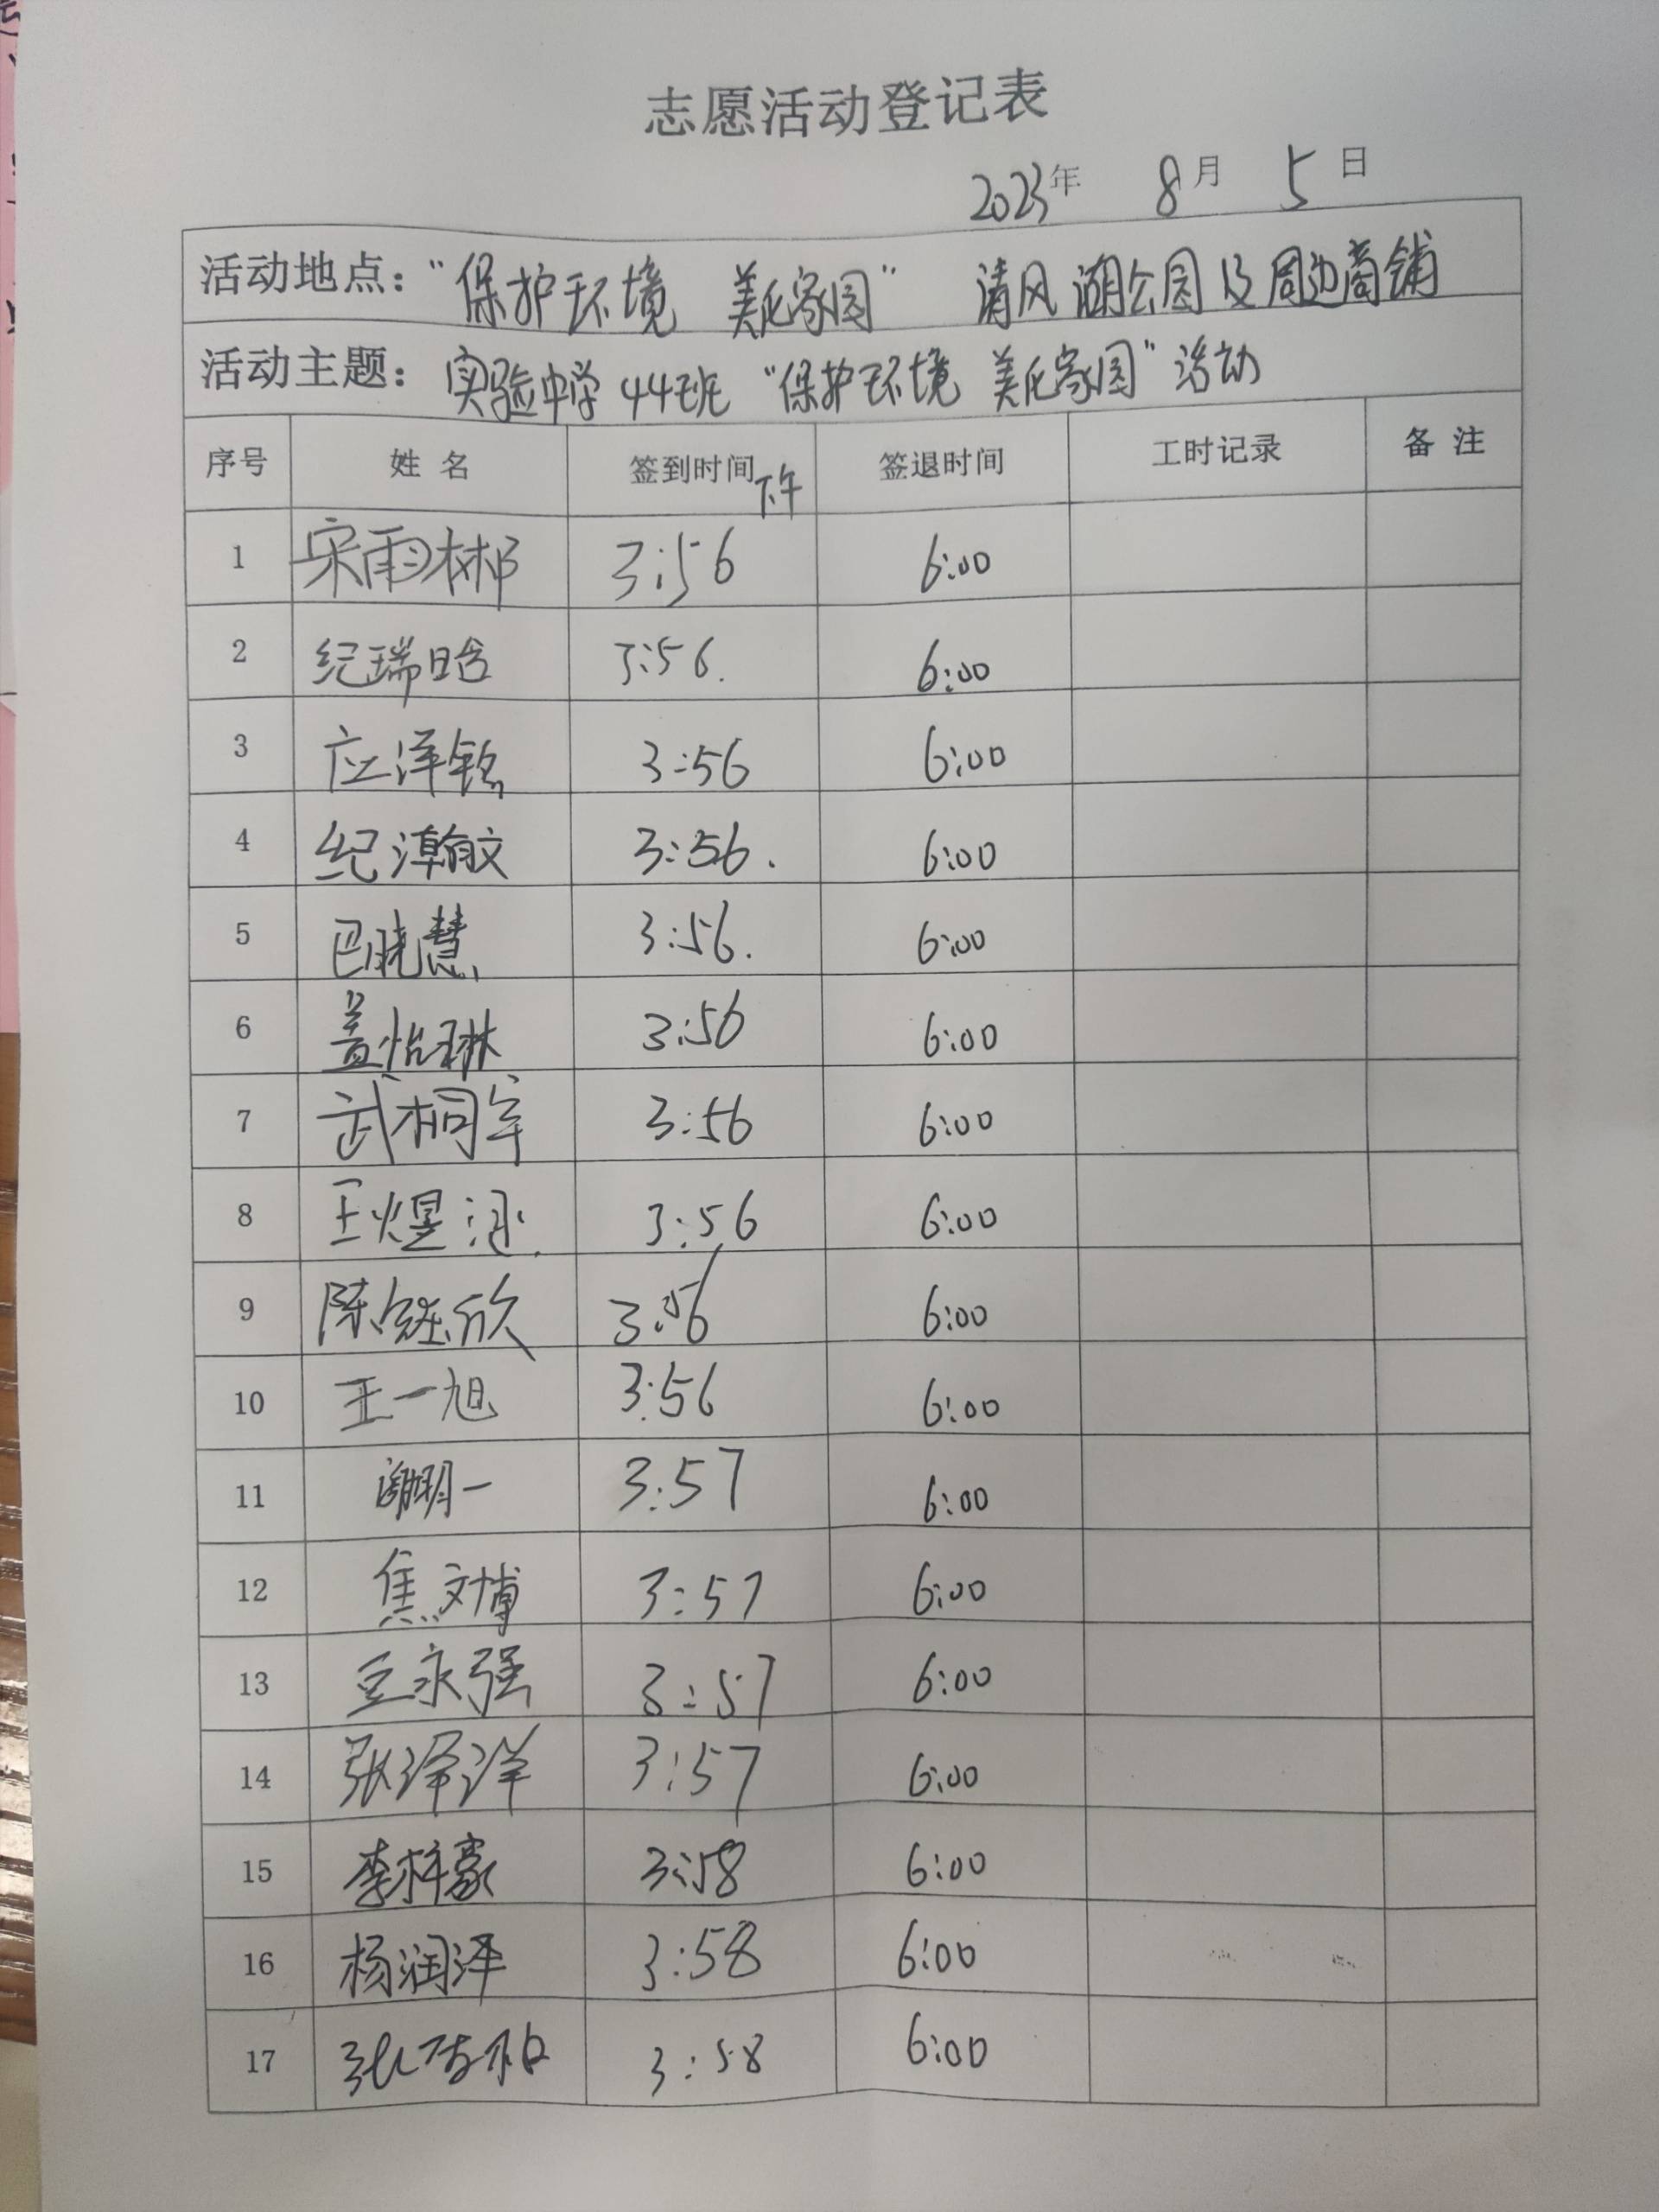 志愿活动登记表
2023年 8月 5日
活动地点：“保护环境 美化家园” 清风湖公园及周边商铺
活动主题：实验中学44班“保护环境 美化家园”活动
序号 姓名 签到时间下午 签退时间 工时记录 备注
1 宋雨彬 3:56 6:00
2 纪瑞晗 3:56. 6:00
3 应泽铭 3:56 6:00
4 纪瀚文 3:56. 6:00
5 巴晓慧 3:56. 6:00
6 盖怡琳 3:56 6:00
7 武桐军 3:56 6:00
8 王煜 3:56 6:00
9 陈钰欣 3:56 6:00
10 王一旭 3:56 6:00
11 谢明一 3:57 6:00
12 焦文博 3:57 6:00
13 豆永强 3:57 6:00
14 张泽洋 3:57 6:00
15 李梓豪 3:58 6:00
16 杨润泽 3:58 6:00
17 张 3:58 6:00